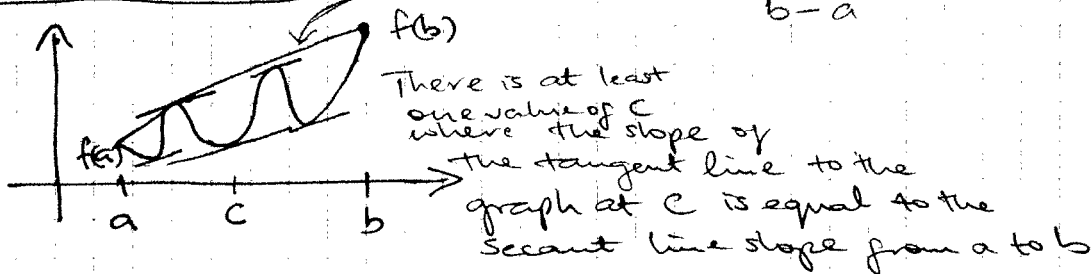 b-a
f(b)
There is at least
one value of C
where the slope of
f(a)
the tangent line to the
a c b
graph at C is equal to the
secant line slope from a to b